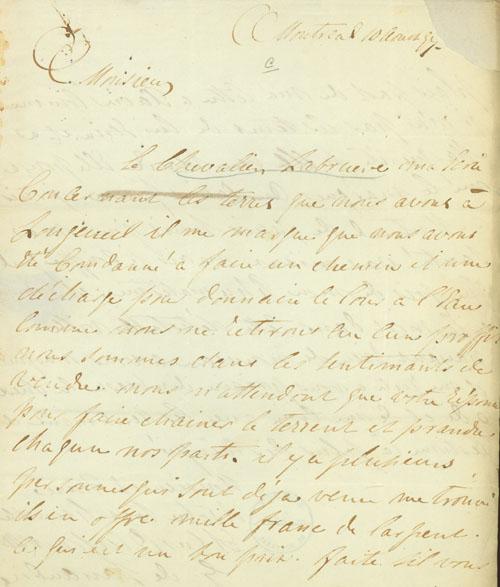 Montreal 10 aoust 97
Monsieur
Le Chevalier Labruere ma ecri
Concernant les terres que nous avons à
Longeuil il me marque que nous avons
été Condanné à faire un chemin et une
décharge pour donnair le cour a l'Eau
Comme nous ne retirons au cun proffit
nous sommes dans les sentiments de
vendre. nous n'attendont que votre réponse
pour faire chainer le terrent et prandre
chaqun nos parts. il y a plusieurs
personnes qui sont déja venu me trouver
ils en offre mille franc de larpent.
ce qui est un bon prix. faite s'il vous